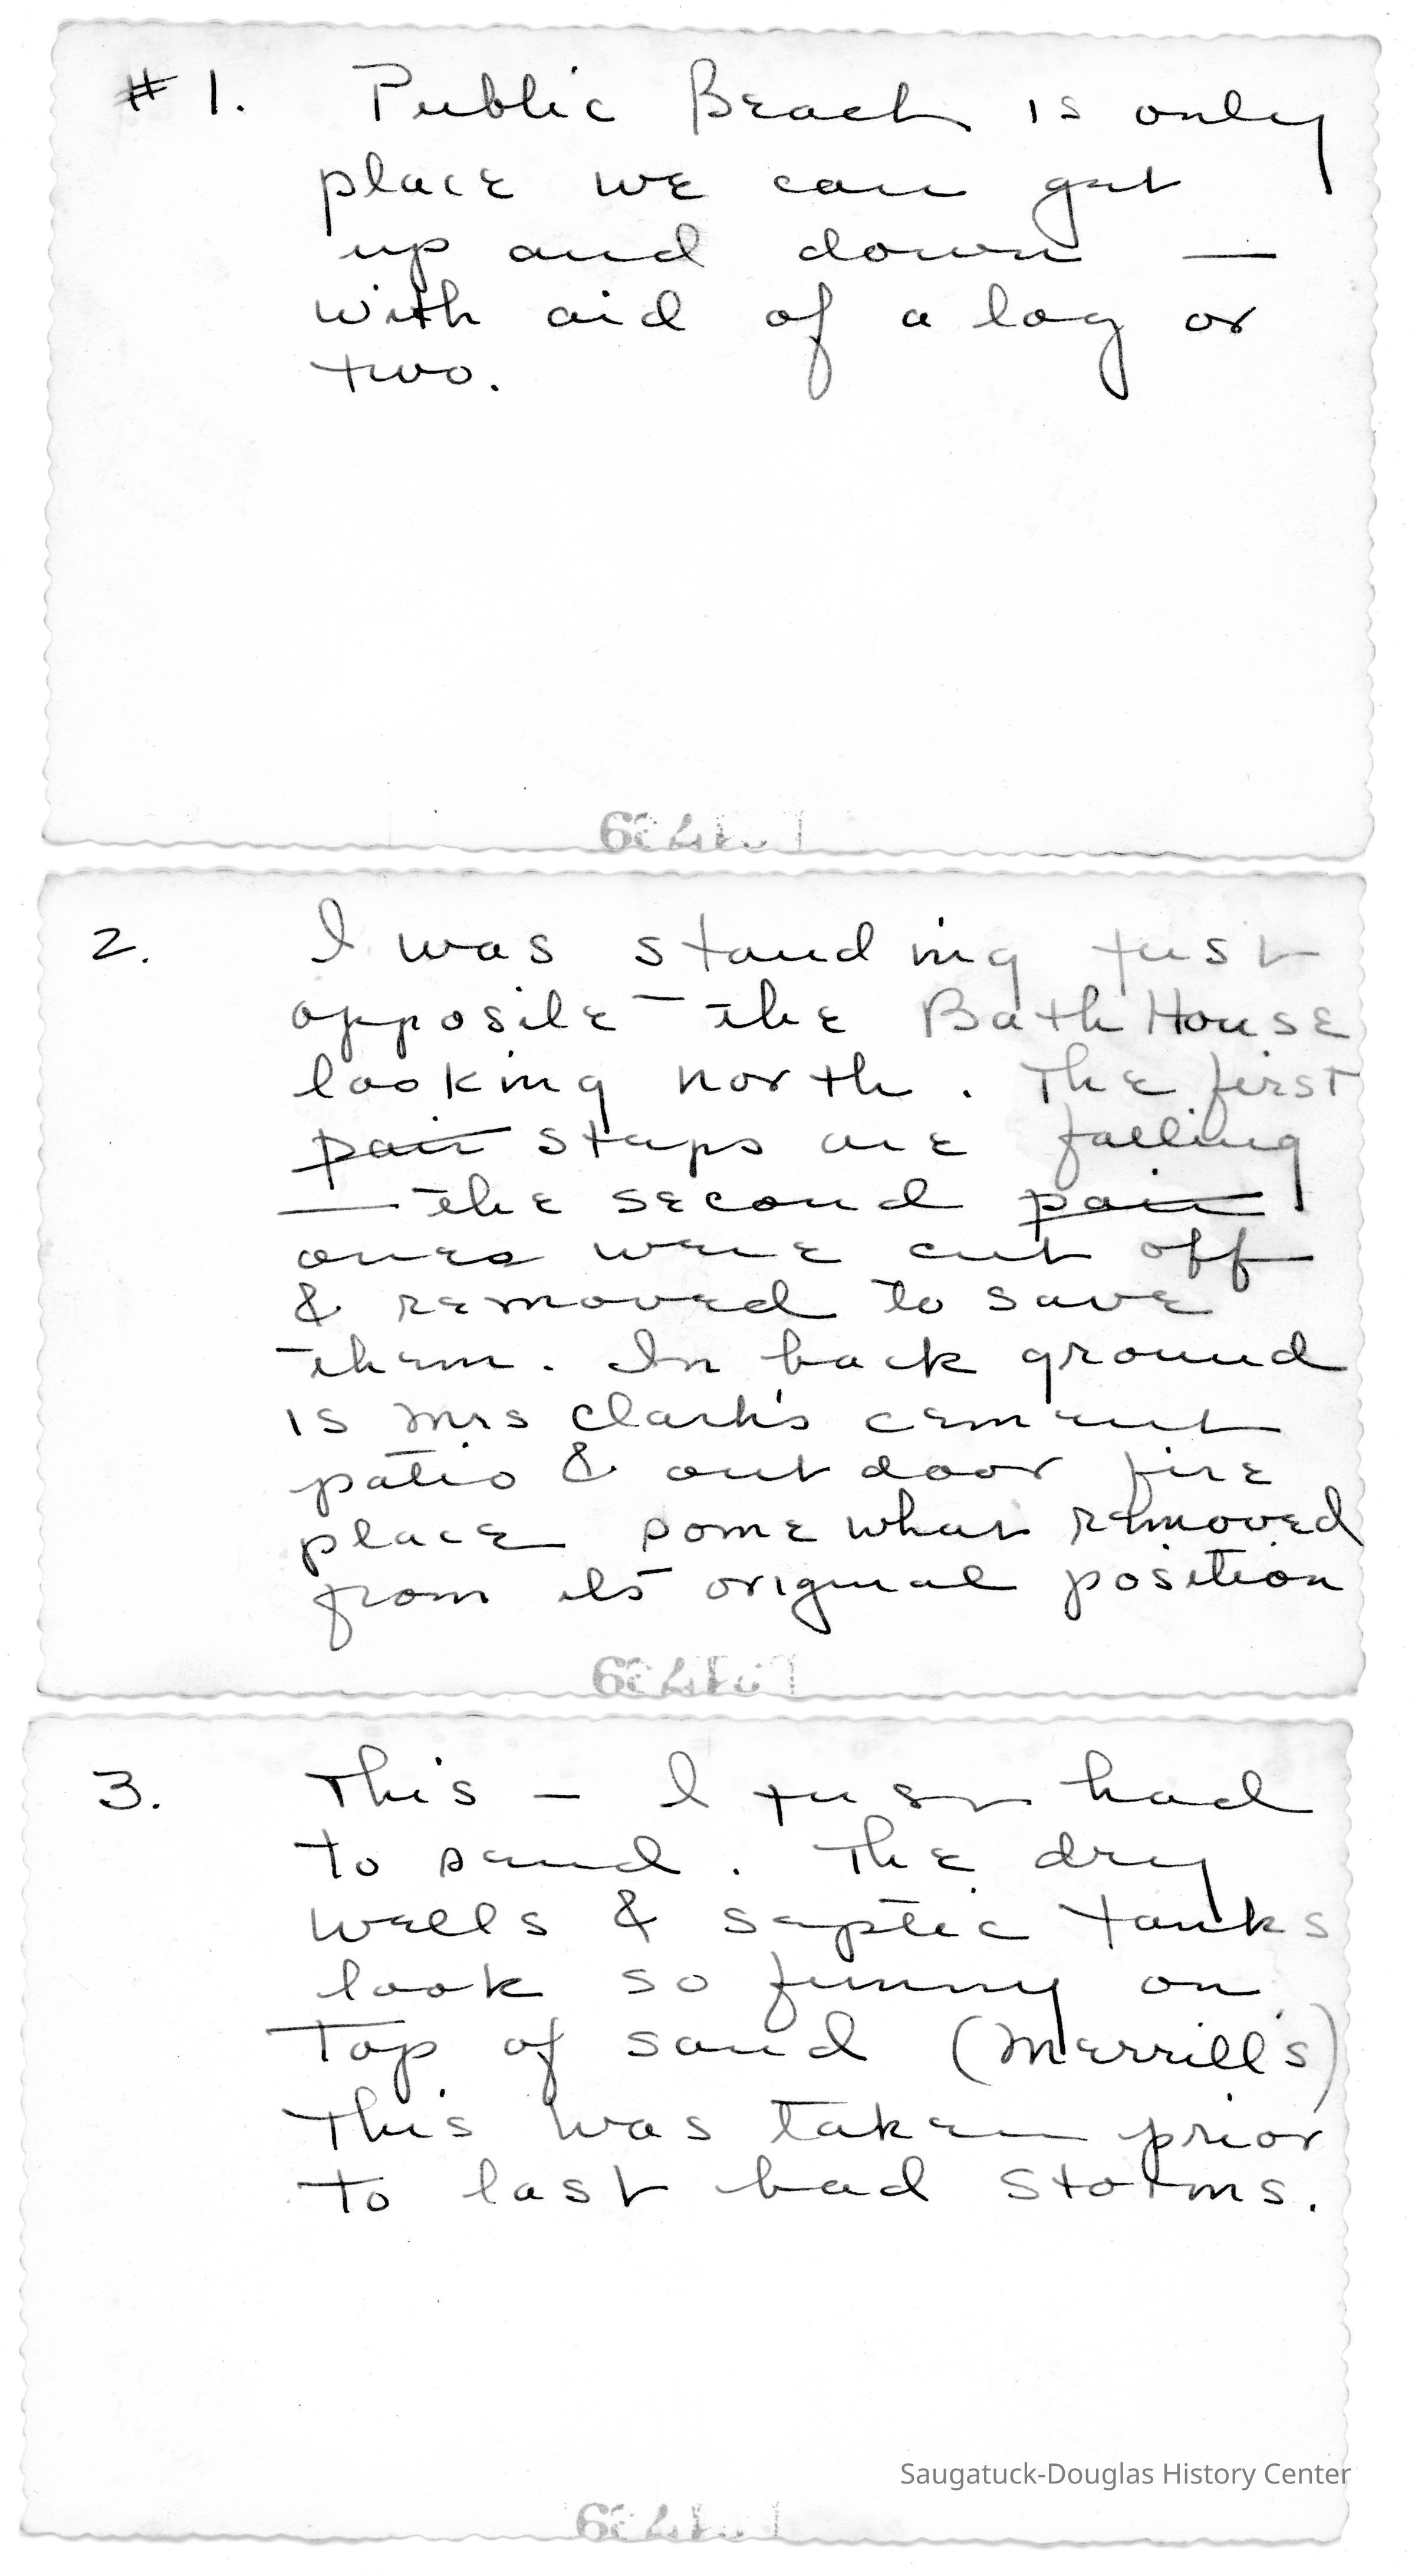 #1. Public Beach is only
place we can get
up and down —
with aid of a log or
two.
2. I was standing just
opposite the Bath House
looking north. The first
pair steps are falling
— the second pair
ones were cut off
& removed to save
them. In back ground
is Mrs Clark's cement
patio & out door fire
place some what removed
from its original position
3. This — I just had
to send. The dry
wells & septic tanks
look so funny on
top of sand (Merrill's)
This was taken prior
to last bad storms.
Saugatuck-Douglas History Center